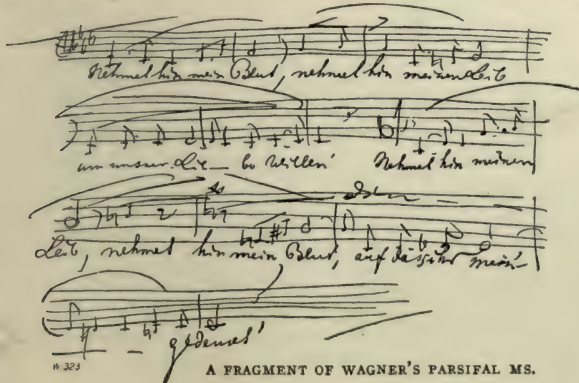 Nehmet hin mein Blut, nehmet hin meinen Leib
um unsrer Lie- be willen! Nehmet hin meinen
Leib, nehmet hin mein Blut, auf dass ihr mein'
gedenket!
W 323
A FRAGMENT OF WAGNER'S PARSIFAL MS.